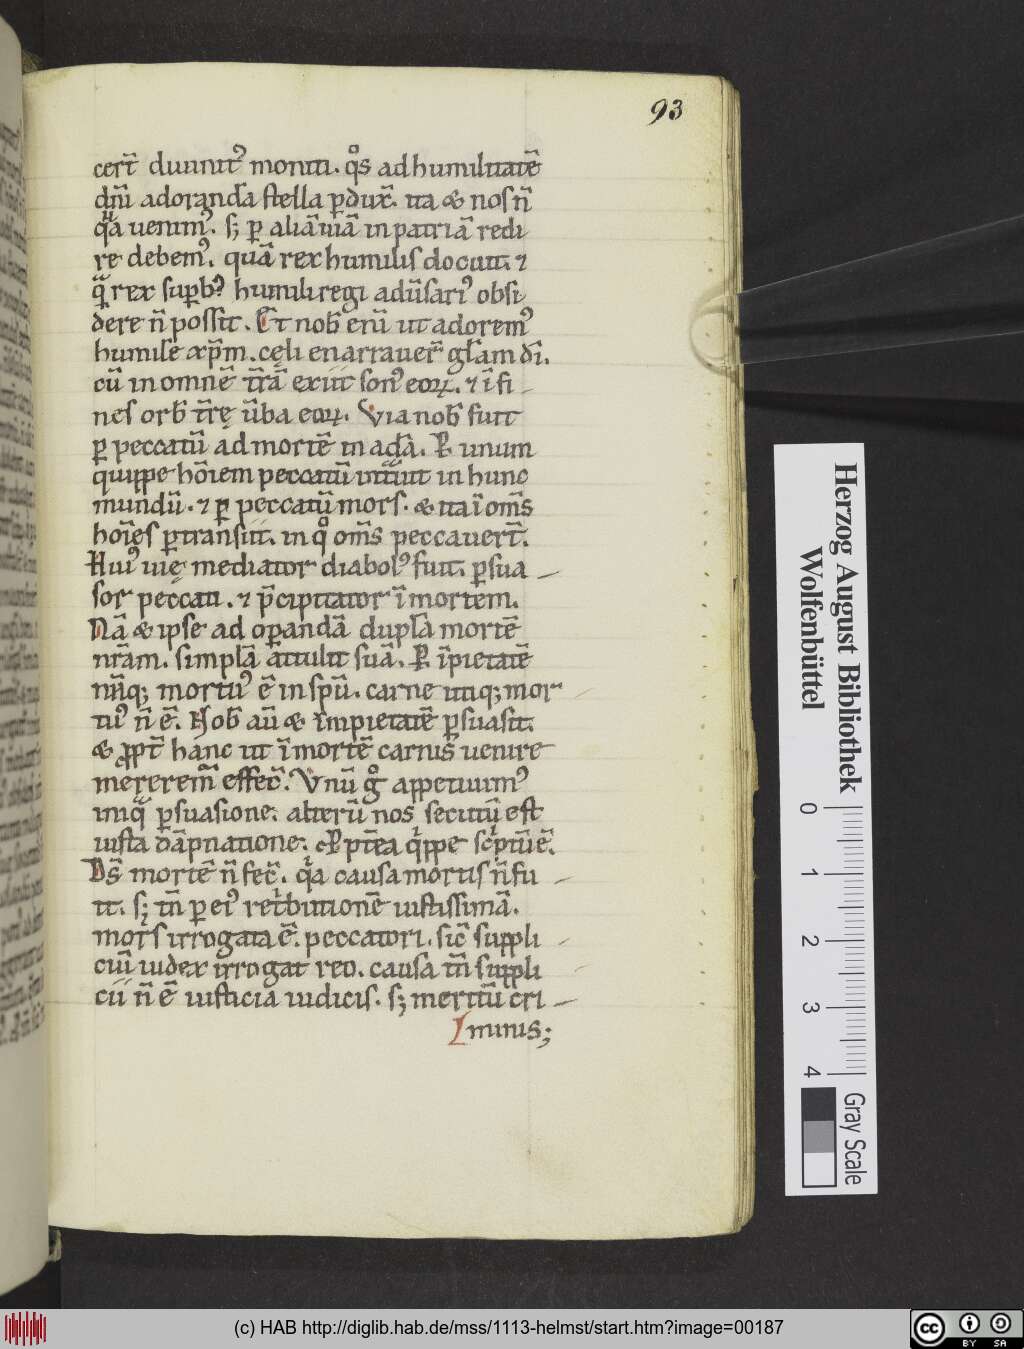 93
cert̄ diuinitꝰ moniti. qͦs ad humilitatē
dn̄i adoranda stella ꝑdux̄. ita & nos n̄
qͣ uenimꝰ. sꝫ ꝑ aliā uiā in patriā redi
re debemꝰ. quā rex humilis docuit. ⁊
qͣ rex supbꝰ humili regi adūsariꝰ obsi
dere n̄ possit. Et nob̄ enī ut adoremꝰ
humilē xp̄m. celi enarrauer̄ gl̄am dī.
cū in omnē t̄rā exiit sonꝰ eoꝝ. ⁊ ī fi
nes orb̄ t̄rę ūba eoꝝ. Via nob̄ fuit
ꝑ peccatū ad mortē in adā. Ꝑ unum
quippe hōiem peccatū intͣuit in hunc
mundū. ⁊ ꝑ peccatū mors. & ita ī om̄s
hoīes ꝑtransiit. in qͦ om̄s peccauert̄.
Huiꝰ uię mediator diabolꝰ fuit. ꝑsua
sor peccati. ⁊ p̄cipitator ī mortem.
Nā & ipse ad oꝑandā duplā mortē
nr̄am. simplā attulit suā. Ꝑ īpietatē
nāqꝫ mortuꝰ ē in spū. carne utiqꝫ mor
tuꝰ n̄ ē. Nob̄ aū & impietatē ꝑsuasit.
& ꝓpt̄ hanc ut ī mortē carnis uenire
mererem̄ effec̄. Vnū gͦ appetiuimꝰ
iniqͣ ꝑsuasione. alterū nos secutū est
iusta dāpnatione. Ꝓptēa qͥppe scͥptū ē.
Ds̄ mortē n̄ fec̄. qͥa causa mortis n̄ fu
it. sꝫ tn̄ ꝑ eiꝰ retͥbutionē iustissimā.
mors irrogata ē. peccatori. sic̄ suppli
ciū iudex irrogat reo. causa tn̄ suppli
cii n̄ ē iusticia iudicis. sꝫ meritū cri
minis;
Herzog August Bibliothek
Wolfenbüttel
0 1 2 3 4
Gray Scale
(c) HAB http://diglib.hab.de/mss/1113-helmst/start.htm?image=00187
cc BY SA